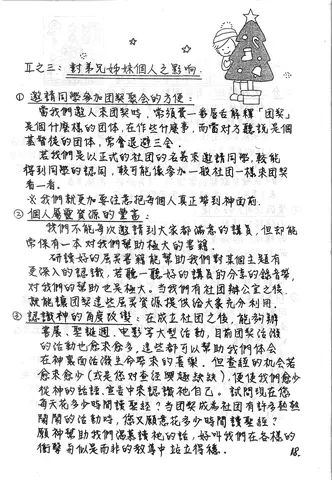 五之三：對弟兄姊妹個人之影响.
① 邀請同學參加团契聚会的方便：
當我們邀人來团契時，常須要一番唇舌解釋「团契」
是個什麼樣的团体，在作些什麼事，而當对方聽説是個
基督徒的团体，常會退避三舍。
若我們是以正式的社团的名義來邀請同學，較能
得到同學的認同，較可能像參加一般社团一樣來团契
看一看。
※ 我們就更加要注意把每個人真正帶到神面前.
② 個人屬靈資源的豐富：
我們不能每次邀請到大家都滿意的講員，但却能
常保有一本对我們幫助極大的書籍.
研讀好的屬灵書籍能幫助我們對某個主題有
更深入的認識，若聽一聽好的講員的分享的錄音帶，
对我們的幫助也是極大。當我們有社团辦公室之後，
就能讓团契這些屬灵資源提供給大家充分利用.
③ 認識神的角度改變：在成立社团之後，能夠辦
書展、聖誕週、电影等大型活動，目前团契活潑
的活動也愈來愈多，這些都可以幫助我們体会
在神裏面活潑生命帶來的喜樂. 但查經的机会若
愈來愈少(或是您对查经興趣缺缺)，便使我們愈少
從神的話語、宣告中來認識祂自己。試問現在您
每天花多少時間讀聖經？當团契成為社团有許多熱熱
鬧鬧的活動時，您又願意花多少時間讀聖經？
願神幫助我們渴慕讀祂的話，好叫我們在各樣的
衝擊与似是而非的教導中站立得穩.
18.